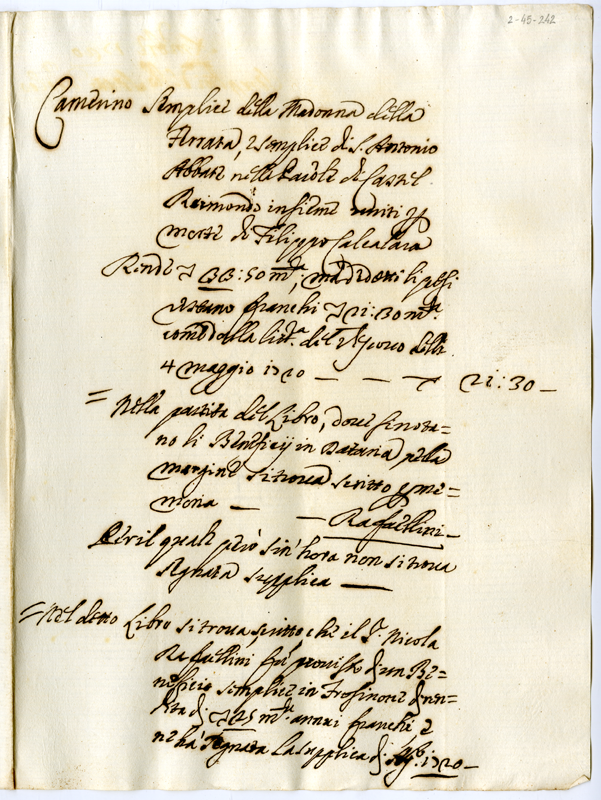 2-45-242
Camerino Semplice della Madonna della
Ferrara, e semplice di S. Antonio
Abbate nelle di Castel
Raimondo insieme uniti p
morte di Filippo Calcalara
Rende 33:50 mta, mà dedotti li pesi
restano franchi 22:30 mta
come dalla list.a del Vescovo delli
4 maggio 1720 — — — 22:30 —
= Nella partita del Libro, dove si nota=
no li Beneficij in Dataria nella
margine si trova scritto p me=
moria — — Rafaellini —
Per il quale però sin'hora non si trova
segnata supplica —
= Nel detto Libro si trova scritto che il S. Nicola
Rafaellini fù provisto d'un Be=
neficio semplice in Frosinone di ren=
dita di 25 mta annui franchi e
ne hà segnata la supplica di 1720 —